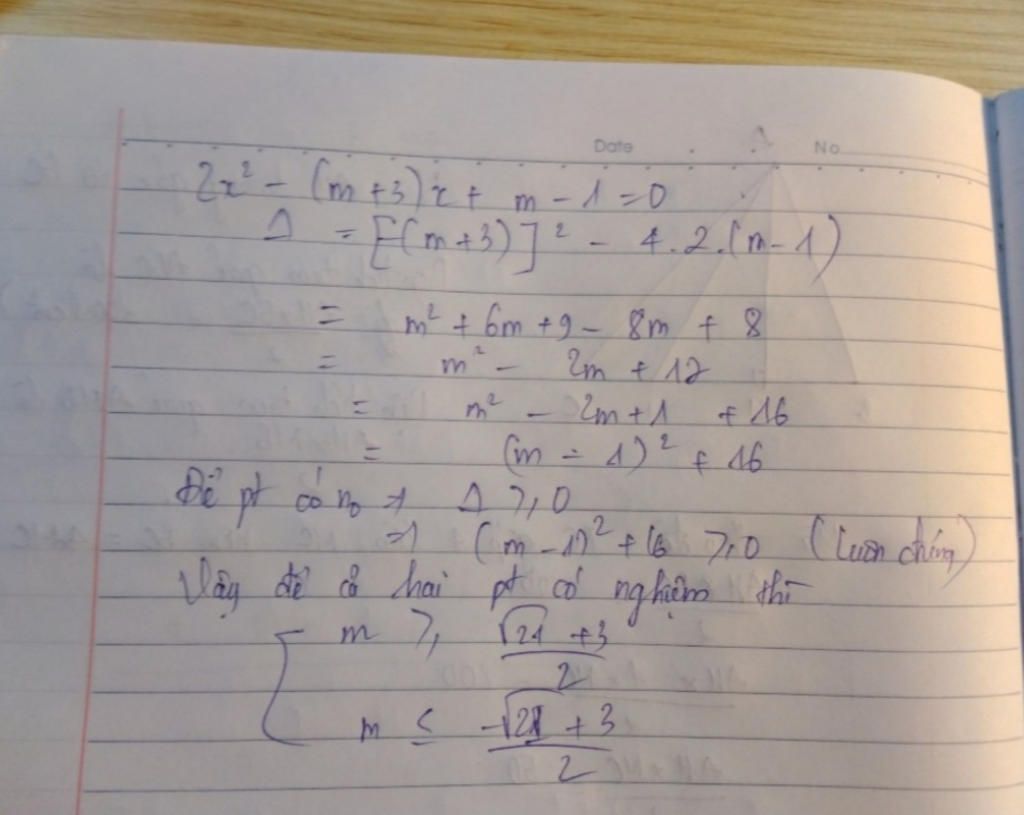 Date No
2x² - (m+3)x + m - 1 = 0
Δ = [-(m+3)]² - 4.2.(m-1)
= m² + 6m + 9 - 8m + 8
= m² - 2m + 17
= m² - 2m + 1 + 16
= (m - 1)² + 16
Để pt có n₀ => Δ ≥ 0
=> (m - 1)² + 16 ≥ 0 (luôn đúng)
Vậy để cả hai pt có nghiệm thì
[ m ≥ (√21 + 3)/2
m ≤ (-√21 + 3)/2